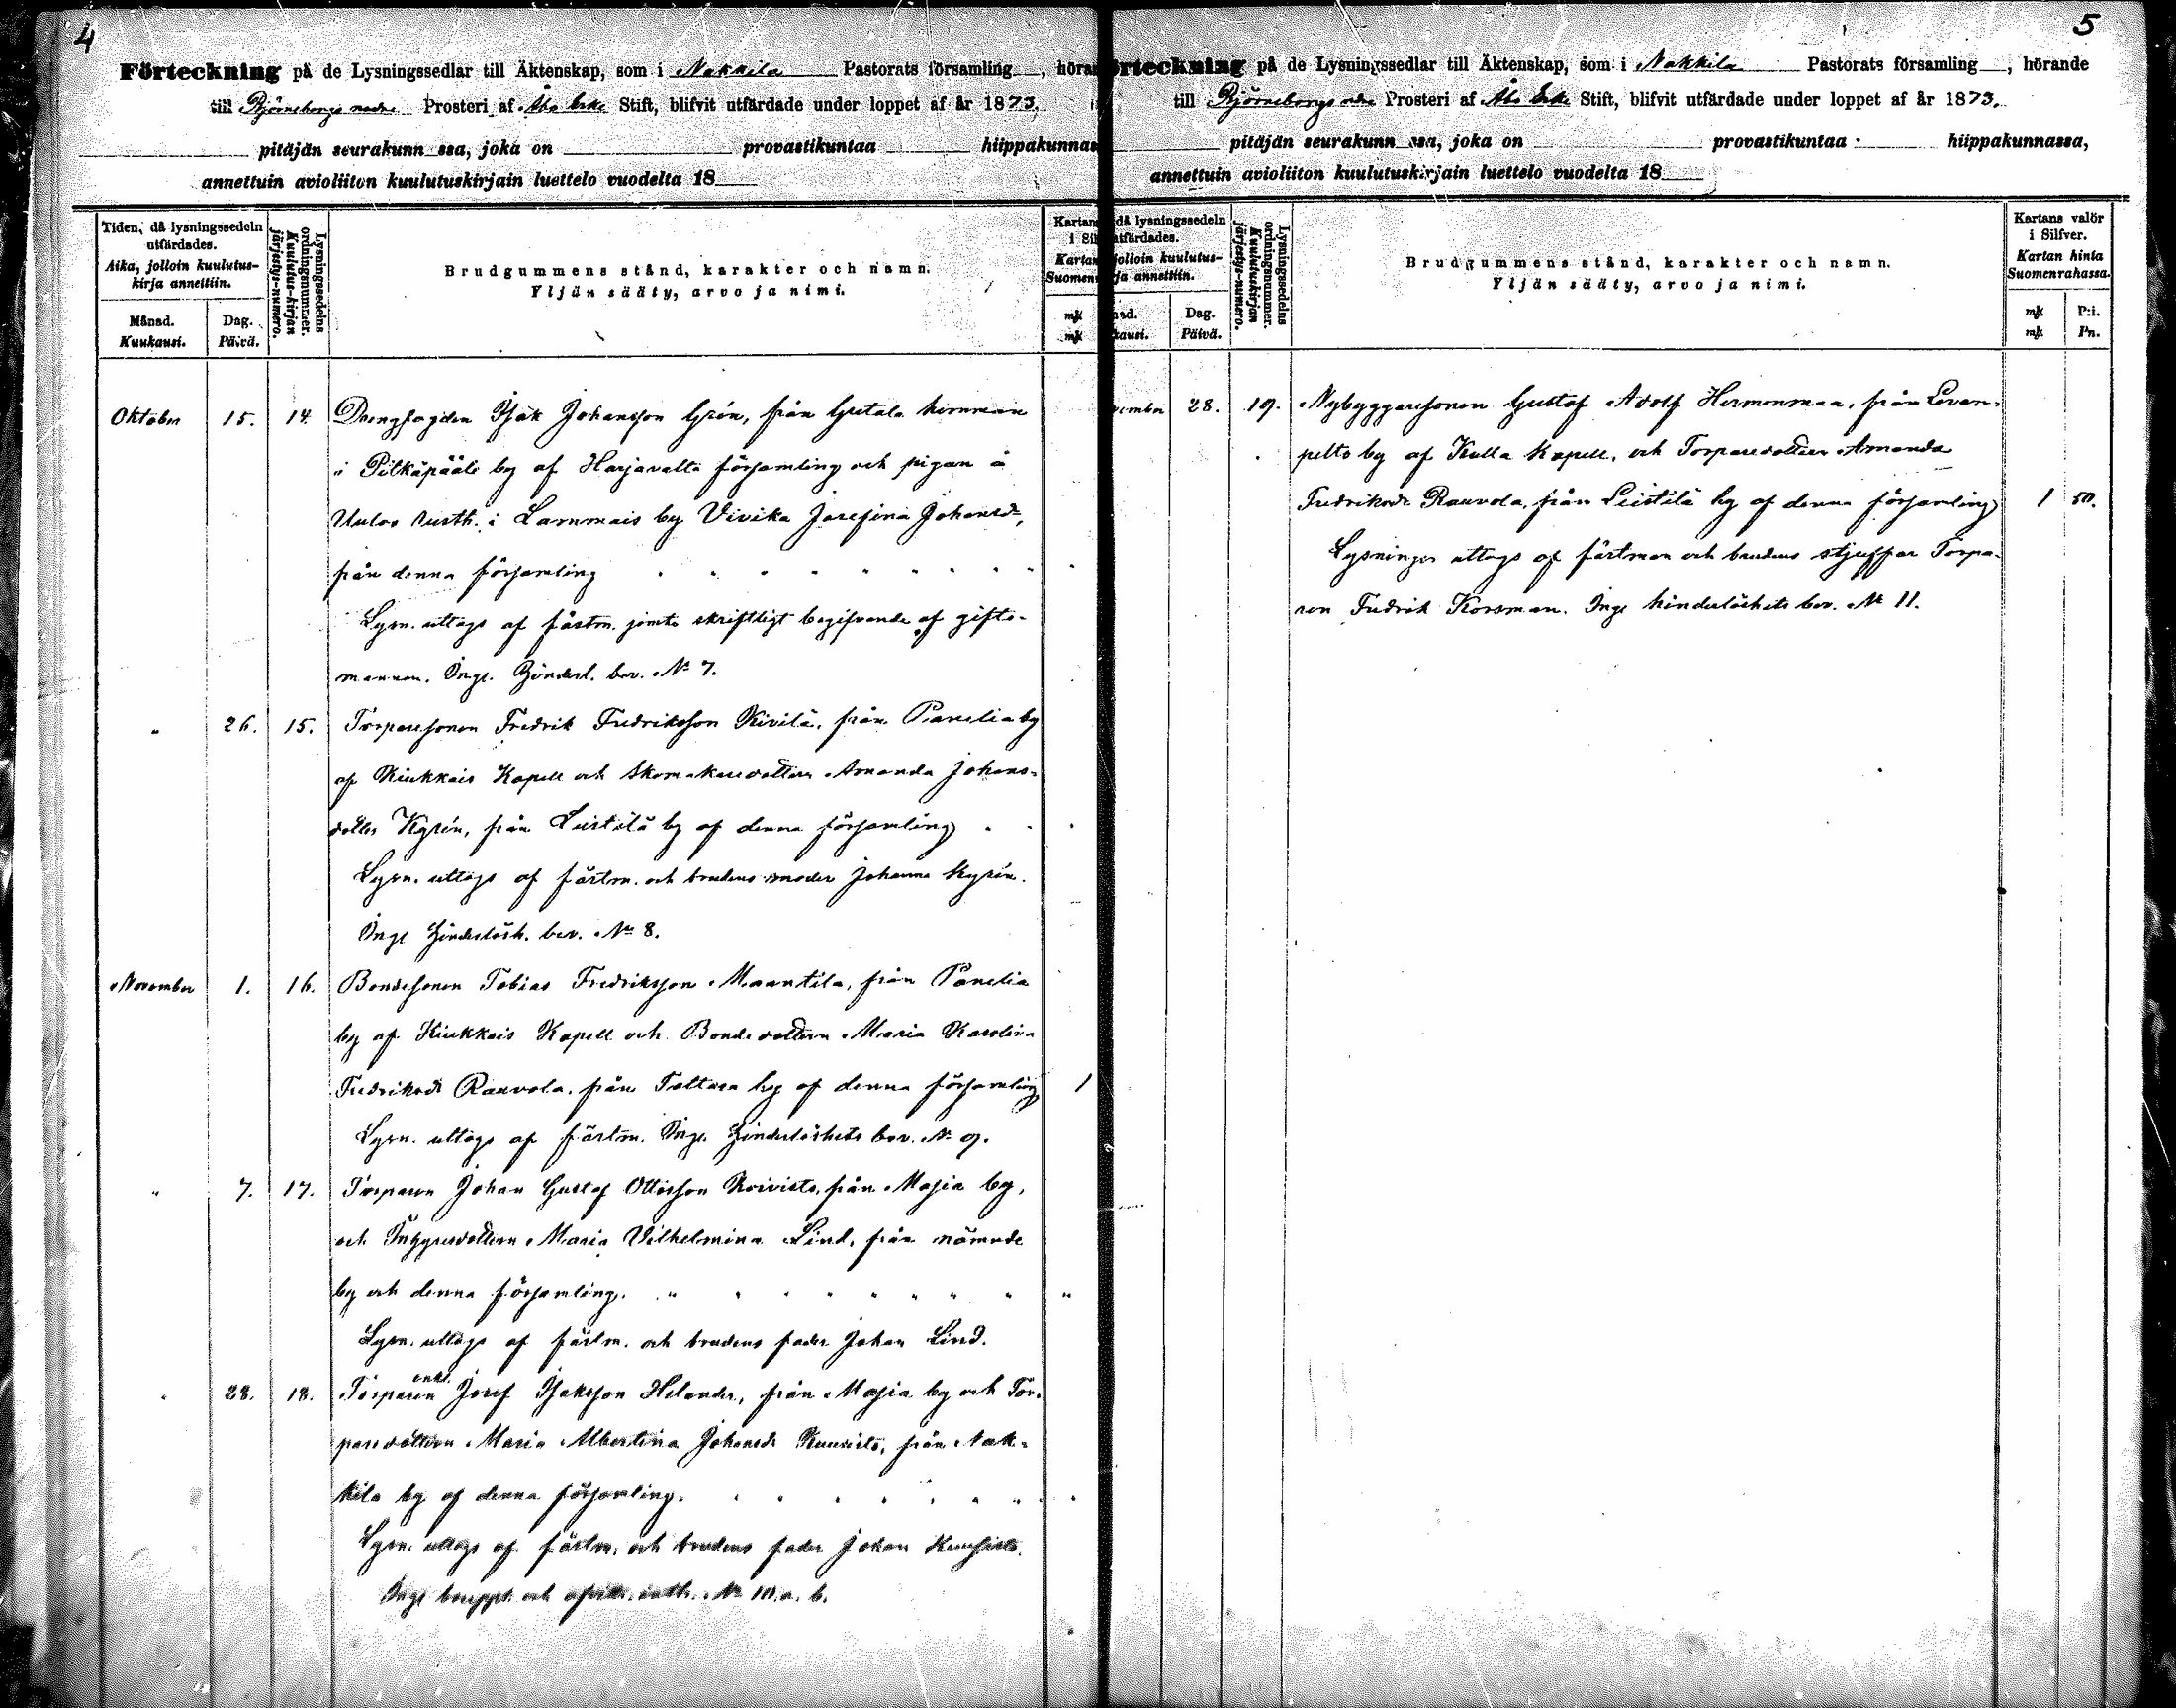 4
Förteckning på de Lysningssedlar till Äktenskap, som i Nakkila Pastorats församling, höran
till Björneborgs nedre Prosteri af Åbo Erke Stift, blifvit utfärdade under loppet af år 1873.
pitäjän seurakunn ssa, joka on provastikuntaa hiippakunnas
annettuin avioliiton kuulutuskirjain luettelo vuodelta 18
Tiden, då lysningssedeln utfärdades.
Aika, jolloin kuulutus-kirja annettiin.
Månad. Kuukausi.
Dag. Päivä.
Lysningssedelns ordningsnummer.
Kuulutus-kirjan järjestys-numero.
Brudgummens stånd, karakter och namn.
Yljän sääty, arvo ja nimi.
Kartan
i Sil
Kartan
Suomen
mk
mk
Oktober 15. 14. Drengfogden Isak Johansson Grén, från Gretala hemman
i Pitkäpäälä by af Harjavalta församling och pigan å
Uulos rusth. i Lammais by Vivika Josefina Johansd:,
från denna församling
Lysn. uttogs af fästm. jemte skriftligt begifvande af gifto-
mannen. Inge. Hinderl. bev. No 7.
" 26. 15. Torparesonen Fredrik Fredriksson Kivilä, från Panelia by
af Kiukkais Kapell och Skomakaredottern Amanda Johans-
dotter Kyrén, från Leistilä by af denna församling
Lysn. uttogs af fästm. och brudens moder Johanna Kyrén.
Inge Hinderlösh. bev. No 8.
November 1. 16. Bondesonen Tobias Fredriksson Maantila, från Panelia
by af Kiukkais Kapell och Bondedottern Maria Karolina
Fredriksdr Rauvola, från Tattara by af denna församling 1
Lysn. uttogs af fästm. Inge. Hinderlöshets bev. No 9.
" 7. 17. Torparen Johan Gustaf Ottosson Koivisto, från Masia by,
och Maria Vilhelmina Lind, från nämnde
by och denna församling. "
Lysn. uttogs af fästm. och brudens fader Johan Lind.
" 28. 18. Torparen enkl. Josef Isaksson Helander, från Masia by och Tor-
paredottern Maria Albertina Johansdr Kuusisto, från Nak-
kila by af denna församling.
Lysn. uttogs af fästm. och brudens fader Johan Kuusisto.
Inge bouppt. och No 10. a. b.
5
örteckning på de Lysningssedlar till Äktenskap, som i Nakkila Pastorats församling, hörande
till Björneborgs nedre Prosteri af Åbo Erke Stift, blifvit utfärdade under loppet af år 1873.
pitäjän seurakunn ssa, joka on provastikuntaa hiippakunnassa,
annettuin avioliiton kuulutuskirjain luettelo vuodelta 18
då lysningssedeln
utfärdades.
jolloin kuulutus-
ja annettiin.
nad. kausi.
Dag. Päivä.
Lysningssedelns ordningsnummer.
Kuulutuskirjan järjestys-numero.
Brudgummens stånd, karakter och namn.
Yljän sääty, arvo ja nimi.
Kartans valör
i Silfver.
Kartan hinta
Suomenrahassa.
mk P:i.
mk Pn.
vember 28. 19. Nybyggaresonen Gustaf Adolf Hermonmaa, från Levan-
pelto by af Kulla Kapell, och Torparedottern Amanda
Fredriksdr Rauvola, från Leistilä by af denna församling 1 50.
Lysningen uttogs af fästman och brudens styffar Torpa-
ren Fredrik Korsman. Inge hinderlöshets bev. No 11.